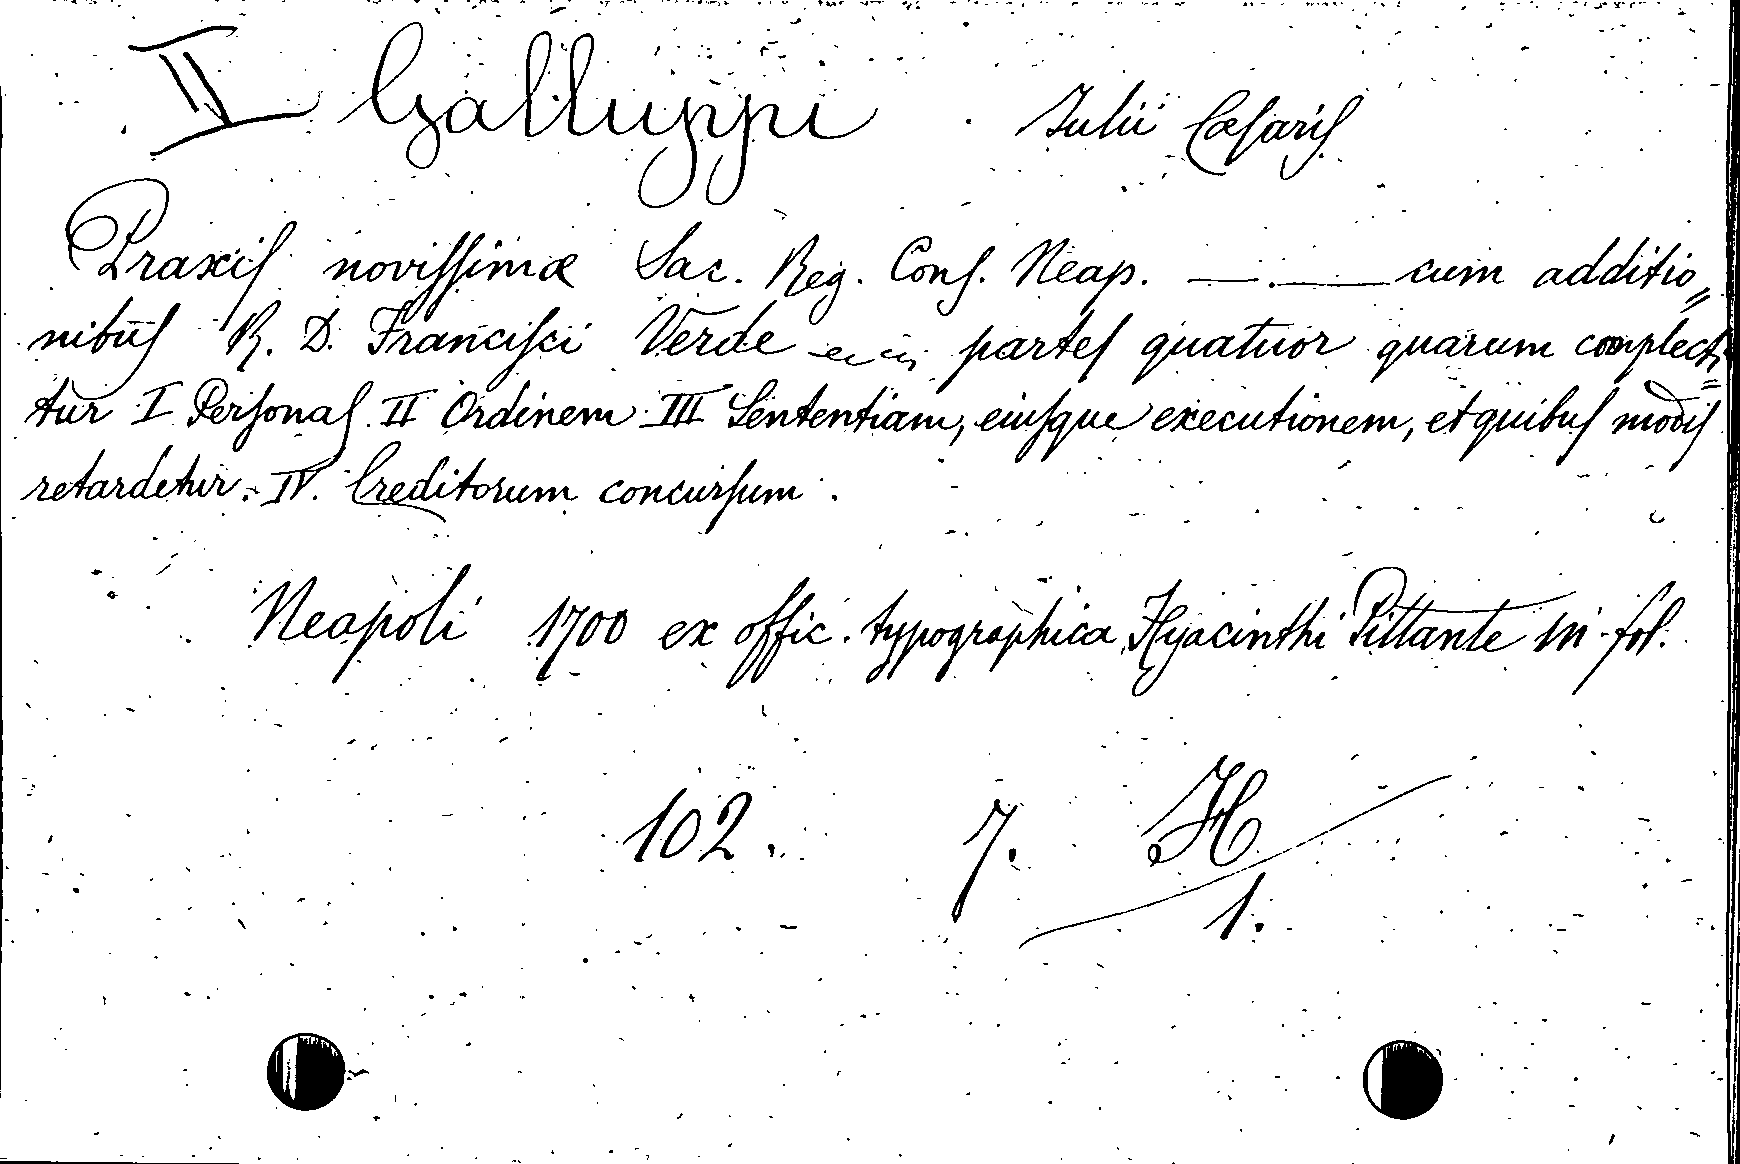 II Galluppi Iulii Cæsaris
Praxis novissimæ Sac. Reg. Cons. Neap. — . — cum additio„
nibus R. D. Francisci Verde partes quatuor quarum complecti=
tur I Personas II Ordinem III Sententiam, eiusque executionem, et quibus modis
retardetur. IV. Creditorum concursum.
Neapoli 1700 ex offic. typographica Hyacinthi Pittante in fol.
102. 7. H
1.